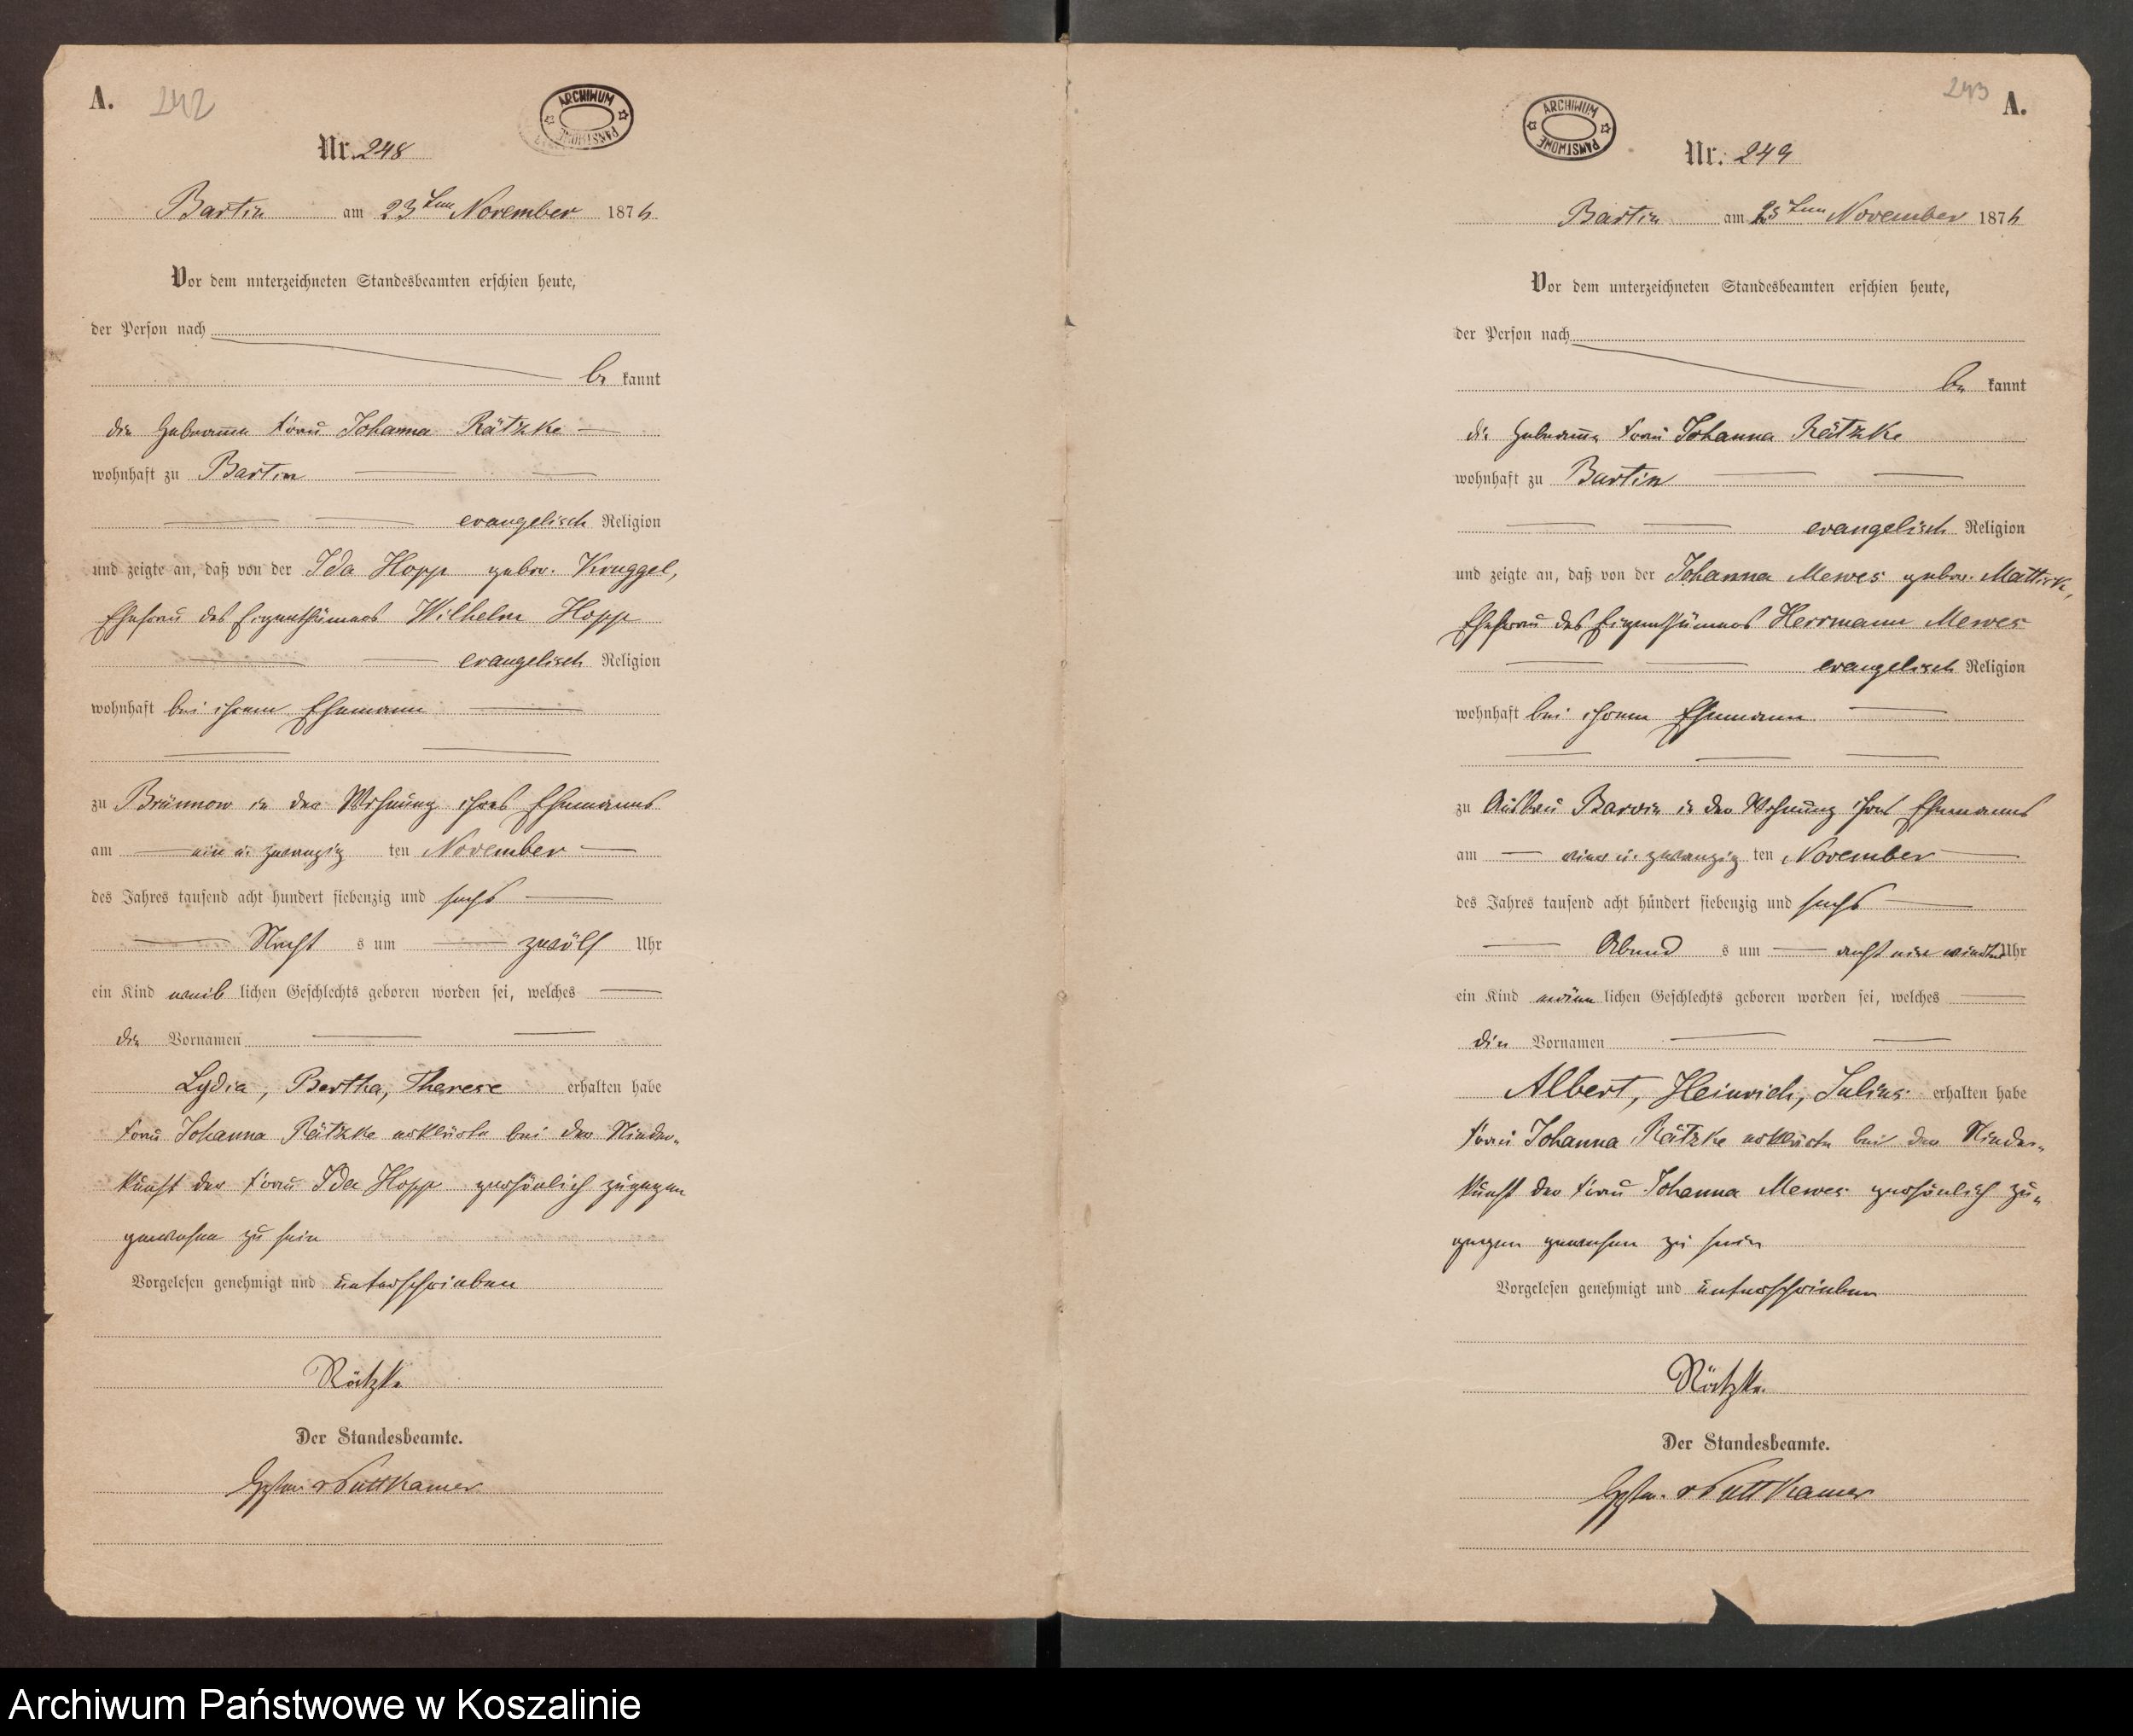 A. 242
ARCHIWUM PAŃSTWOWE
Nr. 248
Bartin am 23ten November 1876
Vor dem unterzeichneten Standesbeamten erschien heute,
der Person nach
be kannt
die Hebamme Frau Johanna Rätzke
wohnhaft zu Bartin
evangelisch Religion
und zeigte an, daß von der Ida Hopp gebor. Kruggel,
Ehefrau des Eigenthümers Wilhelm Hopp
evangelisch Religion
wohnhaft bei ihrem Ehemann
zu Brünnow in der Wohnung ihres Ehemannes
am ein u. zwanzig ten November
des Jahres tausend acht hundert siebenzig und sechs
Nacht s um zwölf Uhr
ein Kind weib lichen Geschlechts geboren worden sei, welches
die Vornamen
Lydia, Bertha, Therese erhalten habe
Frau Johanna Rätzke erklärte bei der Nieder-
kunft der Frau Ida Hopp persönlich zugegen
gewesen zu sein
Vorgelesen genehmigt und unterschrieben
Rätzke
Der Standesbeamte.
v Puttkamer
243 A.
ARCHIWUM PAŃSTWOWE
Nr. 249
Bartin am 23ten November 1876
Vor dem unterzeichneten Standesbeamten erschien heute,
der Person nach
be kannt
die Hebamme Frau Johanna Rätzke
wohnhaft zu Bartin
evangelisch Religion
und zeigte an, daß von der Johanna Mewes gebor.
Ehefrau des Eigenthümers Herrmann Mewes
evangelisch Religion
wohnhaft bei ihrem Ehemann
zu Ausbau Barvin in der Wohnung ihres Ehemannes
am u. zwanzig ten November
des Jahres tausend acht hundert siebenzig und sechs
Abend s um acht ein viertel Uhr
ein Kind männ lichen Geschlechts geboren worden sei, welches
die Vornamen
Albert, Heinrich, Julius erhalten habe
Frau Johanna Rätzke erklärte bei der Nieder-
kunft der Frau Johanna Mewes persönlich zu-
gegen gewesen zu sein
Vorgelesen genehmigt und unterschrieben
Rätzke
Der Standesbeamte.
v Puttkamer
Archiwum Państwowe w Koszalinie